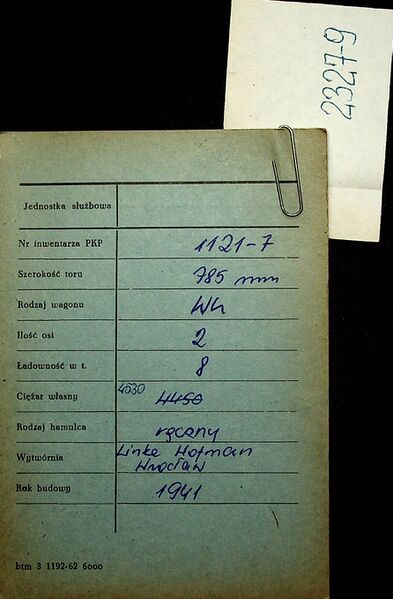 2327-9
Jednostka służbowa
Nr inwentarza PKP 1121-7
Szerokość toru 785 mm
Rodzaj wagonu Wh
Ilość osi 2
Ładowność w t. 8
Ciężar własny 4530 4450
Rodzaj hamulca ręczny
Wytwórnia Linke Hofman
Wrocław
Rok budowy 1941
btm 3 1192-62 6000